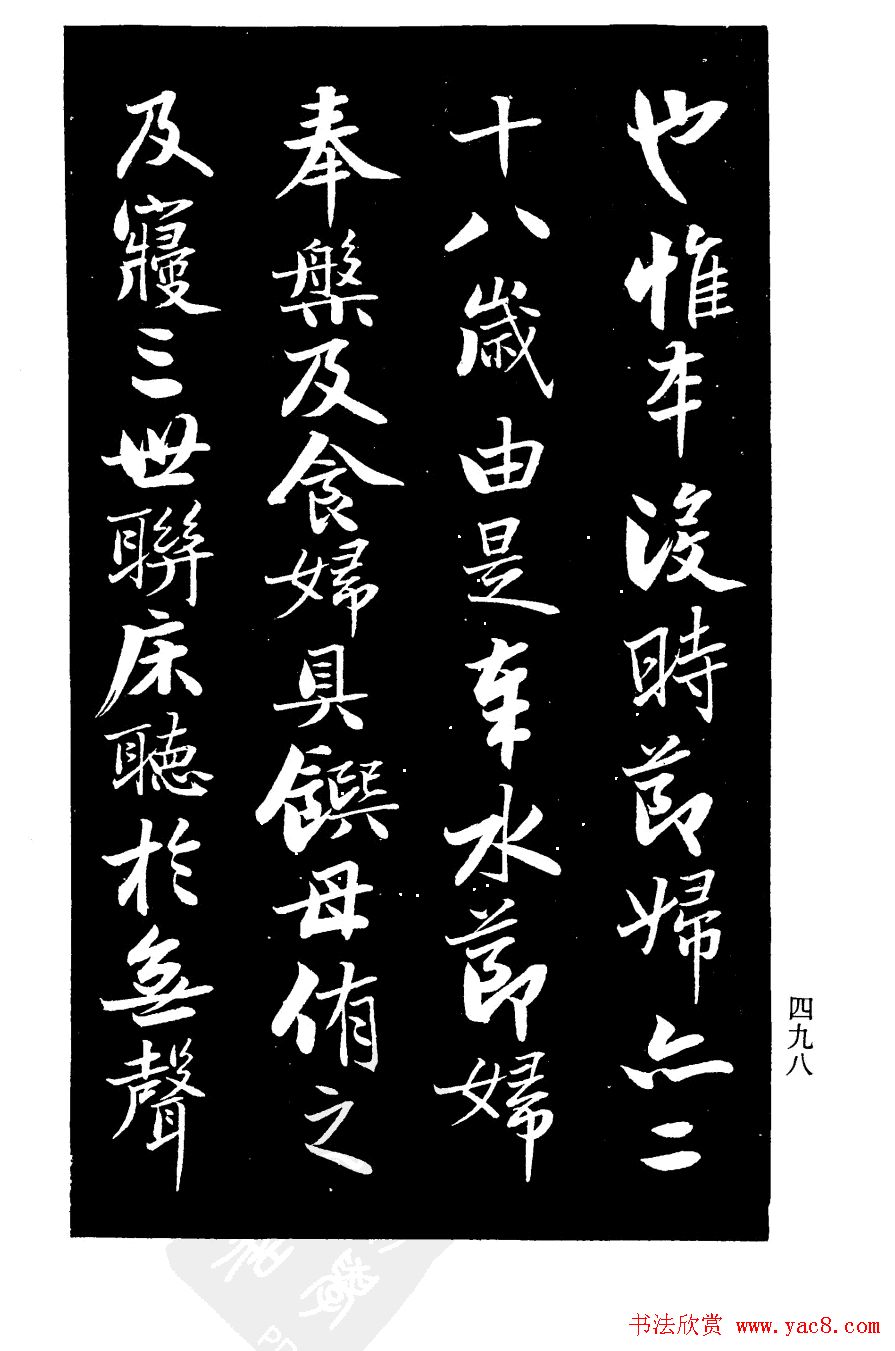 也惟本没時節婦亦二
十八歲由是奉水節婦
奉槃及食婦具饌母侑之
及寢三世聯床聽於無聲
四九八
书法欣赏 www.yac8.com